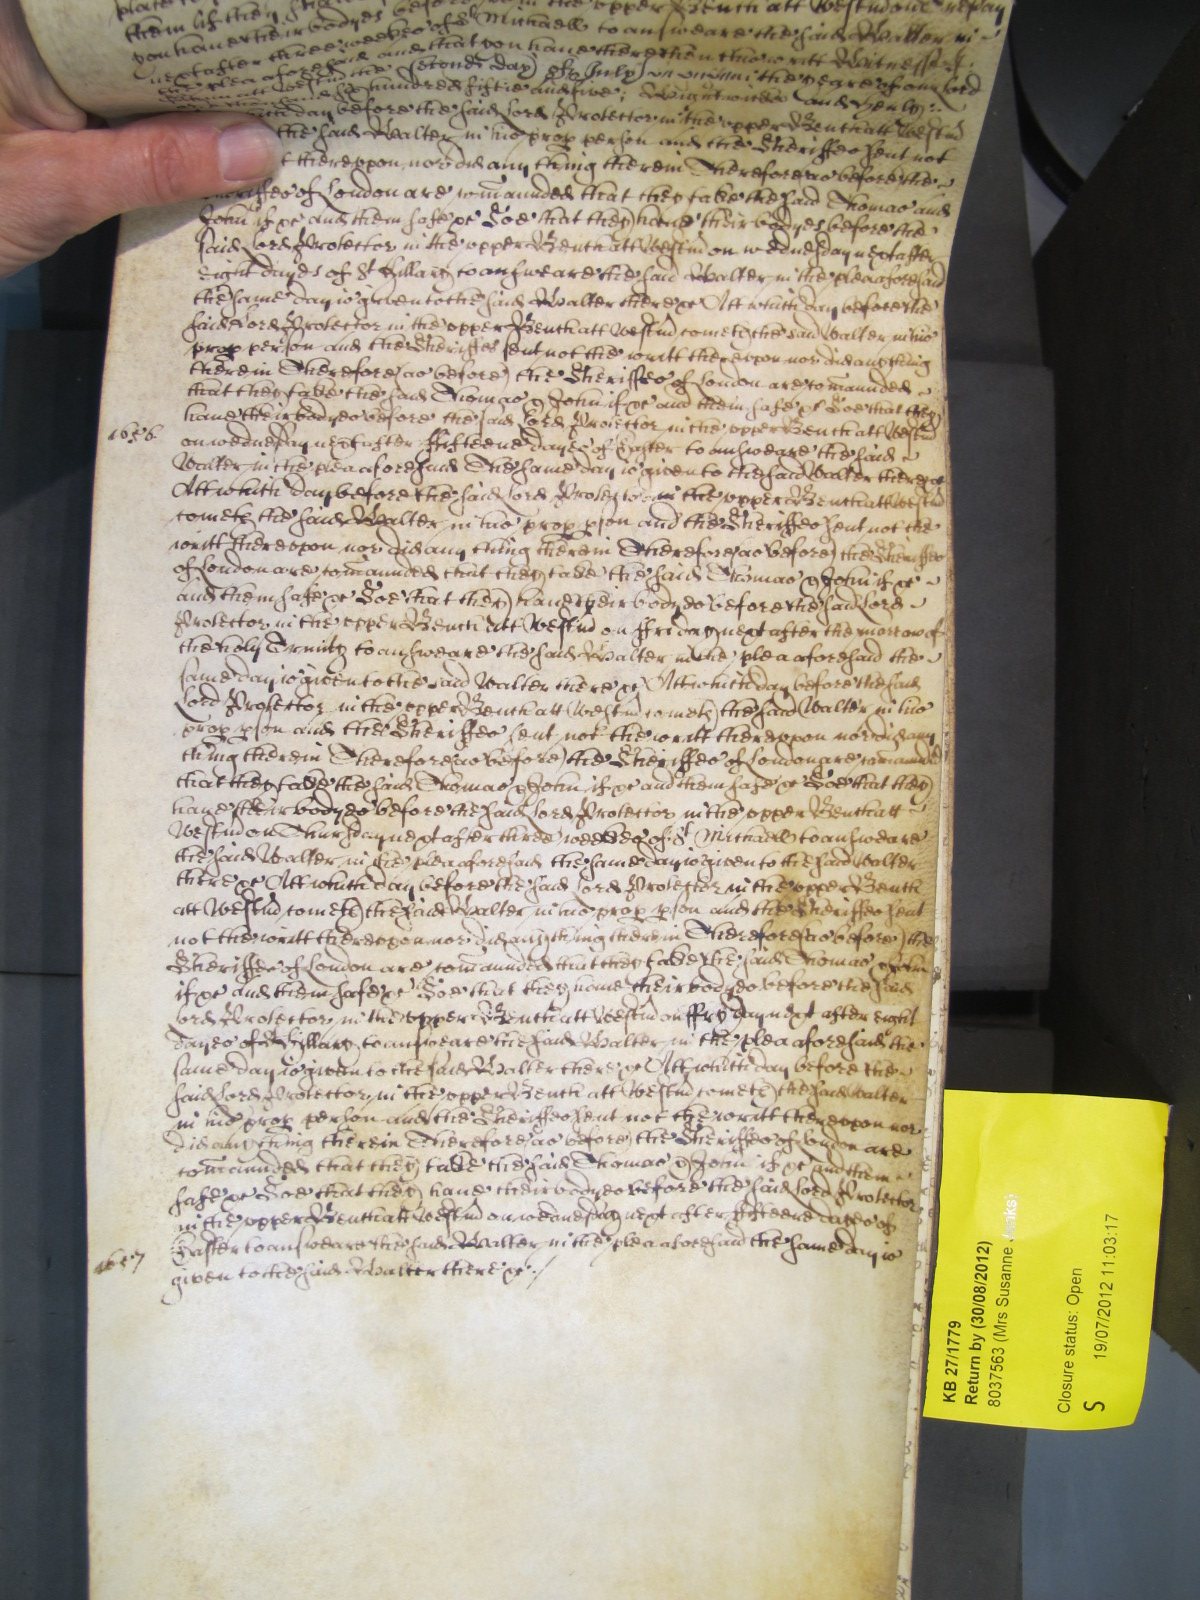 them if they shall
you have their bodyes before in the upper Bench att Westm on
Michaell to answeare the said Walter in
next after three weekes of
plea aforesaid and that you have there then this writt Witnesse
att Westm the second day of July in the yeare of our Lord
hundred fiftie and five; and Henly:
day before the said Lord Protector in the upper Bench att Westm
the said Walter in his prop person and the Sheriffes sent not
thereupon nor did any thing therein Therefore as before the
Sheriffes of London are comaunded that they take the said Thomas and
John if &c and them safe &c Soe that they have their bodyes before the
said Lord Protector in the upper Bench att Westm on wednesday next after
eight dayes of St Hillary to answeare the said Walter in the plea aforesaid
the same day is given to the said Walter there &c Att which day before the
said Lord Protector in the upper Bench att Westm cometh the said Walter in his
prop person and the Sheriffes sent not the writt thereupon nor did any thing
therein Therefore (as before) the Sheriffes of London are comaunded
that they take the said Thomas & John if &c and them safe &c Soe that they
have their bodyes before the said Lord Protector in the upper Bench att Westm
1656
on wednesday next after fifteene dayes of Easter to answeare the said
Walter in the plea aforesaid The same day is given to the said Walter there &c
Att which day before the said Lord Protector in the upper Bench att Westm
cometh the said Walter in his prop pson and the Sheriffes sent not the
writt thereupon nor did any thing therein Therefore (as before) the Sheriffes
of London are comaunded that they take the said Thomas & John if &c
and them safe &c Soe that they have their bodyes before the said Lord
Protector in the upper Bench att Westm on ffriday next after the morrow of
the holy Trinity to answeare the said Walter in the plea aforesaid the
same day is given to the said Walter there &c Att which day before the said
Lord Protector in the upper Bench att Westm cometh the said Walter in his
prop pson and the Sheriffes sent not the writt thereupon nor did any
thing therein Therefore (as before) the Sheriffes of London are comaunded
that they take the said Thomas & John if &c and them safe &c Soe that they
have their bodyes before the said Lord Protector in the upper Bench att
Westm on Thursday next after three weekes of St Michaell to answeare
the said Walter in the plea aforesaid the same day is given to the said Walter
there &c Att which day before the said Lord Protector in the upper Bench
att Westm cometh the said Walter in his prop pson and the Sheriffes sent
not the writt thereupon nor did any thing therein Therefore (as before) the
Sheriffes of London are comaunded that they take the said Thomas & John
if &c and them safe &c Soe that they have their bodyes before the said
Lord Protector in the upper Bench att Westm on ffryday next after eight
dayes of St Hillary to answeare the said Walter in the plea aforesaid the
same day is given to the said Walter there &c Att which day before the
said Lord Protector in the upper Bench att Westm cometh the said Walter
in his prop person and the Sheriffes sent not the writt thereupon nor
did any thing therein Therefore (as before) the Sheriffes of London are
comaunded that they take the said Thomas & John if &c and them
safe &c Soe that they have their bodyes before the said Lord Protector
in the upper Bench att Westm on wednesday next after fifteene dayes of
1657
Easter to answeare the said Walter in the plea aforesaid the same day is
given to the said Walter there &c./
KB 27/1779
Return by (30/08/2012)
8037563 (Mrs Susanne
Closure status: Open
S 19/07/2012 11:03:17